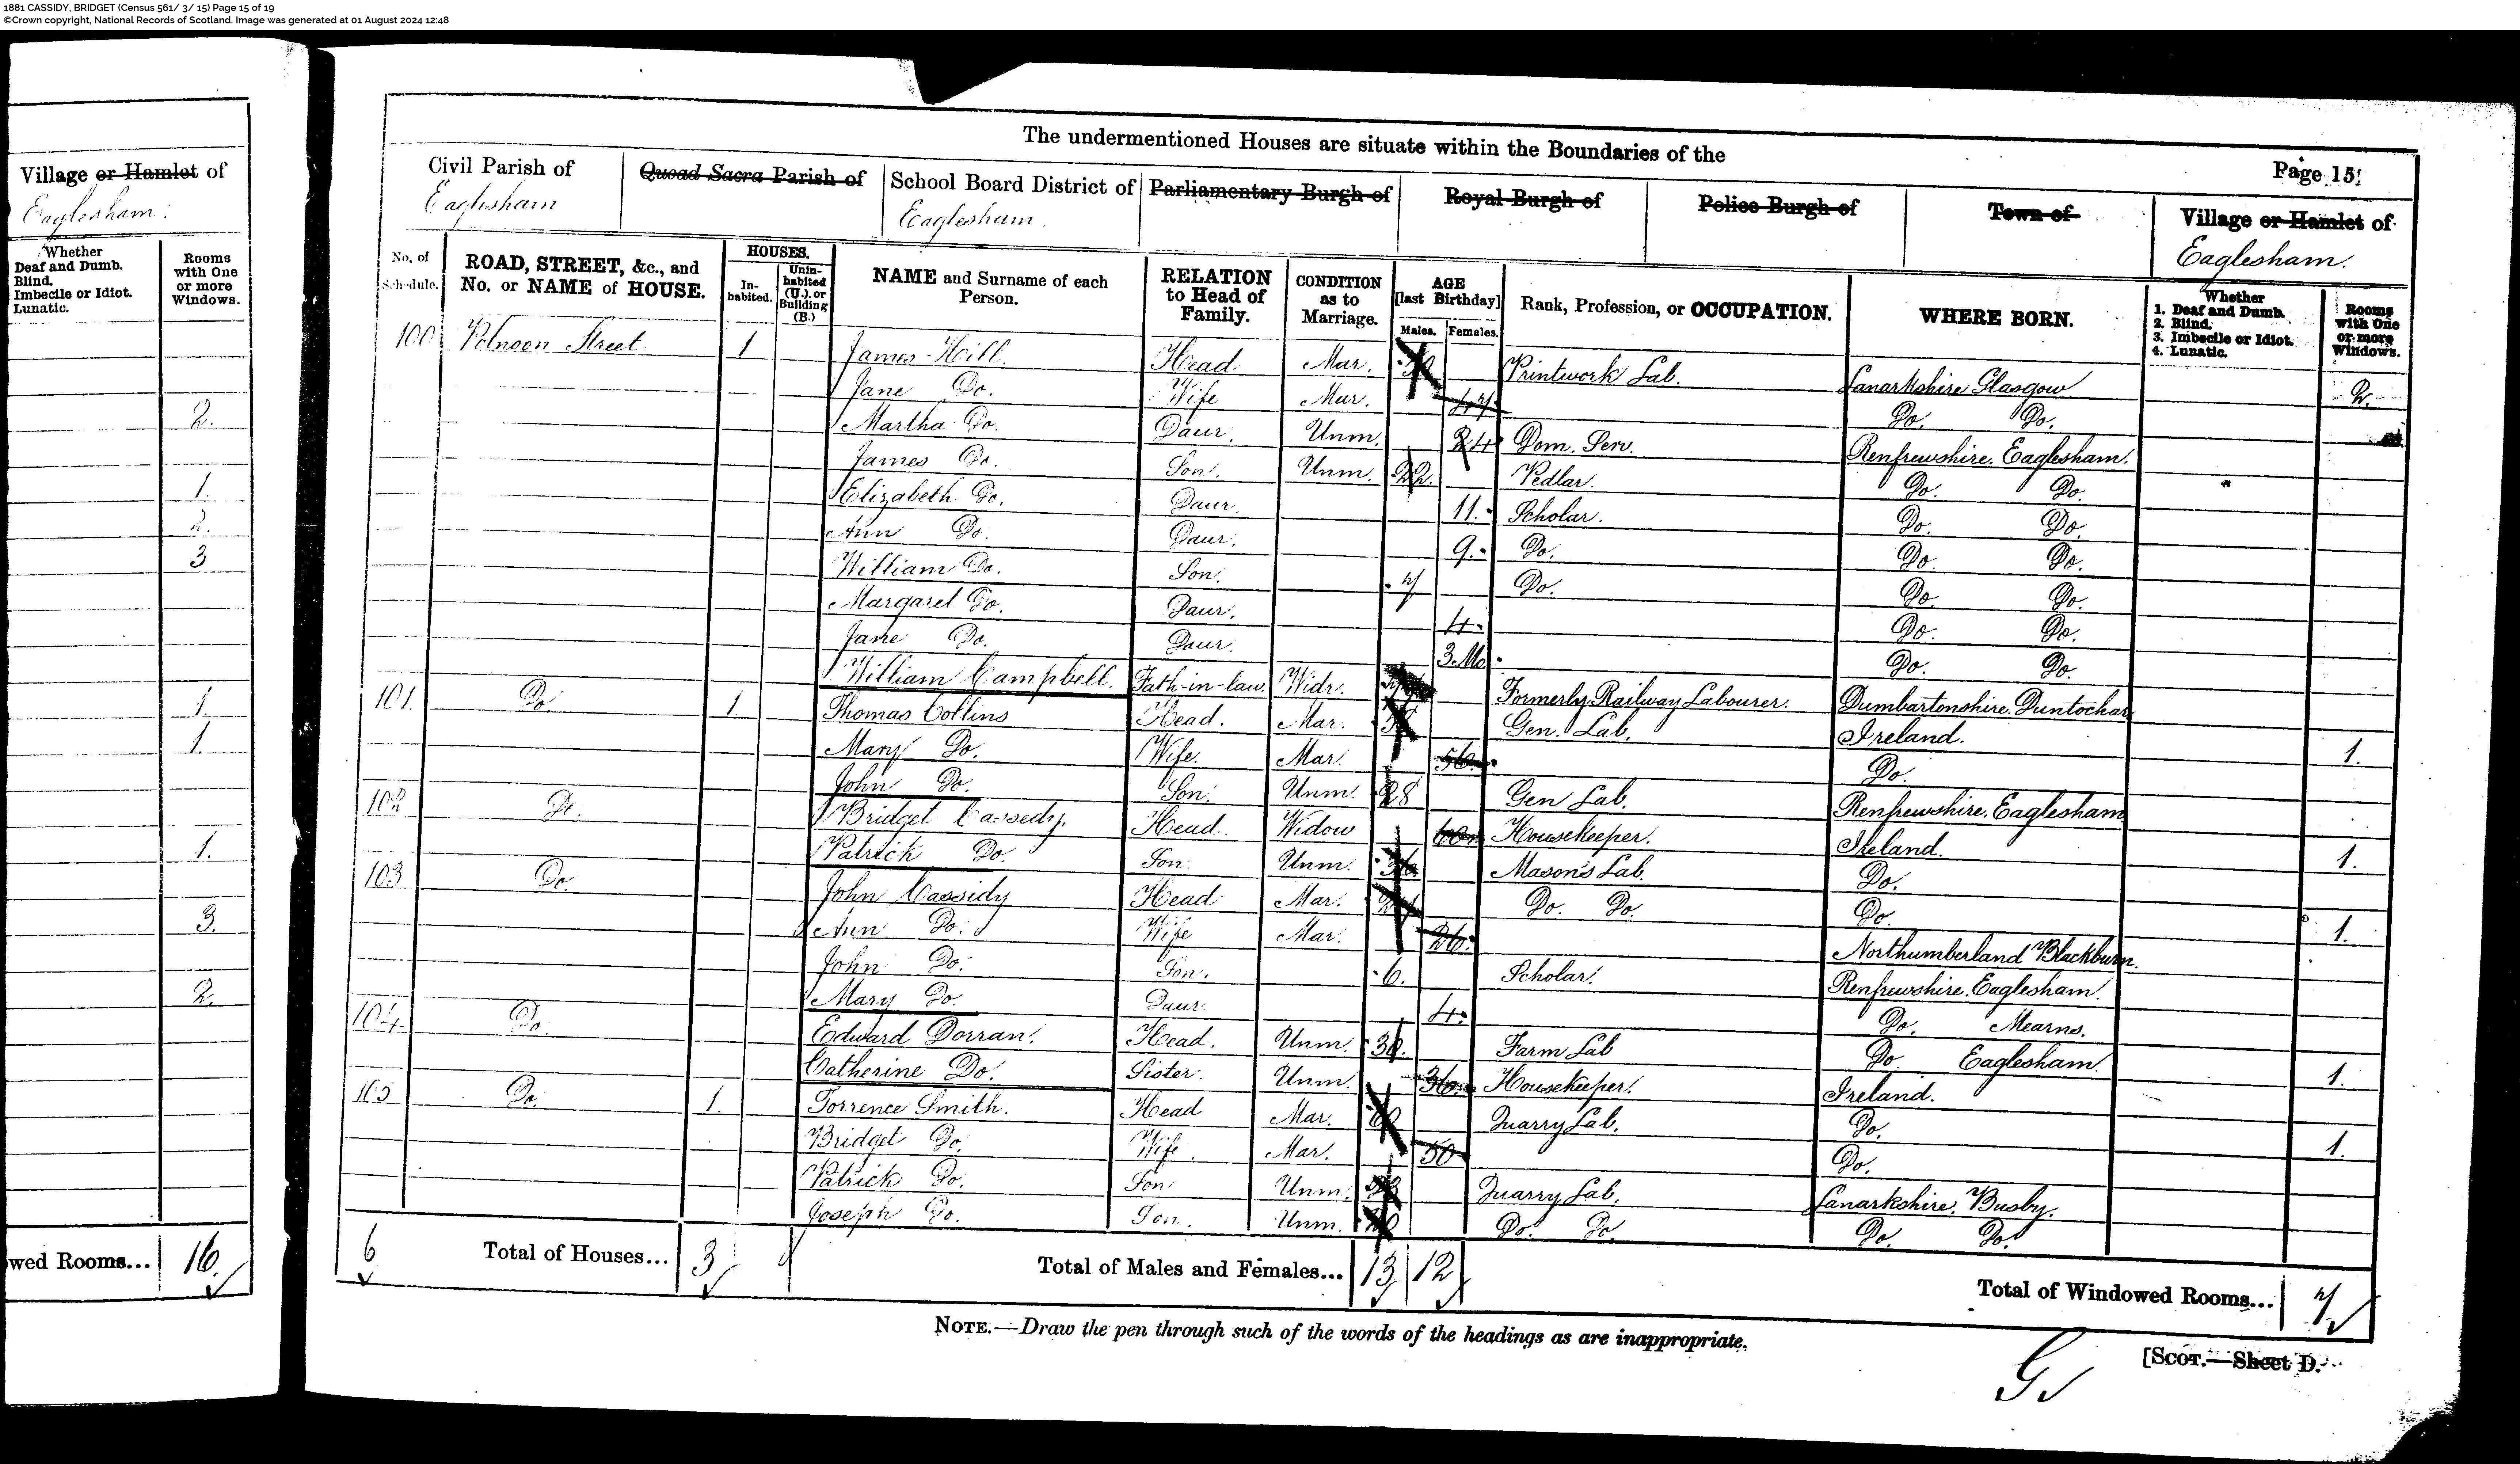 1881 CASSIDY, BRIDGET (Census 561/ 3/ 15) Page 15 of 19
©Crown copyright, National Records of Scotland. Image was generated at 01 August 2024 12:48
Village or Hamlet of
Eaglesham.
Whether
Deaf and Dumb.
Blind.
Imbecile or Idiot.
Lunatic.
Rooms
with One
or more
Windows.
2.
1.
2.
3
1.
1.
1.
3.
2.
owed Rooms... 16
The undermentioned Houses are situate within the Boundaries of the
Page 15
Civil Parish of
Eaglesham
Quoad Sacra Parish of
School Board District of
Eaglesham
Parliamentary Burgh of
Royal Burgh of
Police Burgh of
Town of
Village or Hamlet of
Eaglesham.
No. of Schedule.
ROAD, STREET, &c., and No. or NAME of HOUSE.
HOUSES.
In-habited.
Unin-habited (U.), or Building (B.)
NAME and Surname of each Person.
RELATION to Head of Family.
CONDITION as to Marriage.
AGE [last Birthday]
Males. Females.
Rank, Profession, or OCCUPATION.
WHERE BORN.
Whether
1. Deaf and Dumb.
2. Blind.
3. Imbecile or Idiot.
4. Lunatic.
Rooms with One or more Windows.
100 Polnoon Street 1 James Hill Head Mar. Printwork Lab. Lanarkshire Glasgow 2.
Jane Do. Wife Mar. 47 Do. Do.
Martha Do. Daur. Unm. 24 Dom. Serv. Renfrewshire. Eaglesham.
James Do. Son. Unm. 22. Pedlar. Do. Do.
Elizabeth Do. Daur. 11. Scholar. Do. Do.
Ann Do. Daur. 9. Do. Do. Do.
William Do. Son. 7 Do. Do. Do.
Margaret Do. Daur. 4. Do. Do.
Jane Do. Daur. 3 Mo. Do. Do.
William Campbell. Fath-in-law. Widr. Formerly Railway Labourer. Dumbartonshire. Duntochar
101. Do. 1 Thomas Collins Head. Mar. Gen. Lab. Ireland. 1.
Mary Do. Wife. Mar. 56. Do.
John Do. Son. Unm. 28 Gen Lab. Renfrewshire. Eaglesham
102 Do. Bridget Cassedy. Head. Widow 60 Housekeeper. Ireland. 1.
Patrick Do. Son. Unm. 36 Mason's Lab. Do.
103 Do. John Cassidy Head Mar. Do. Do. Do. 1.
Ann Do. Wife Mar. 26. Northumberland Blackburn.
John Do. Son. 6. Scholar. Renfrewshire. Eaglesham.
Mary Do. Daur. 4. Do. Mearns.
104. Do. Edward Dorran. Head. Unm. 30. Farm Lab Do. Eaglesham. 1.
Catherine Do. Sister. Unm. 36 Housekeeper. Ireland.
105 Do. 1. Torrence Smith. Head Mar. 60 Quarry Lab. Do. 1.
Bridget Do. Wife. Mar. 50 Do.
Patrick Do. Son Unm. Quarry Lab. Lanarkshire. Busby.
Joseph Do. Son. Unm. 20 Do. Do. Do. Do.
6 Total of Houses... 3 Total of Males and Females... 13 12 Total of Windowed Rooms... 7
NOTE.—Draw the pen through such of the words of the headings as are inappropriate.
[SCOT.—Sheet D.